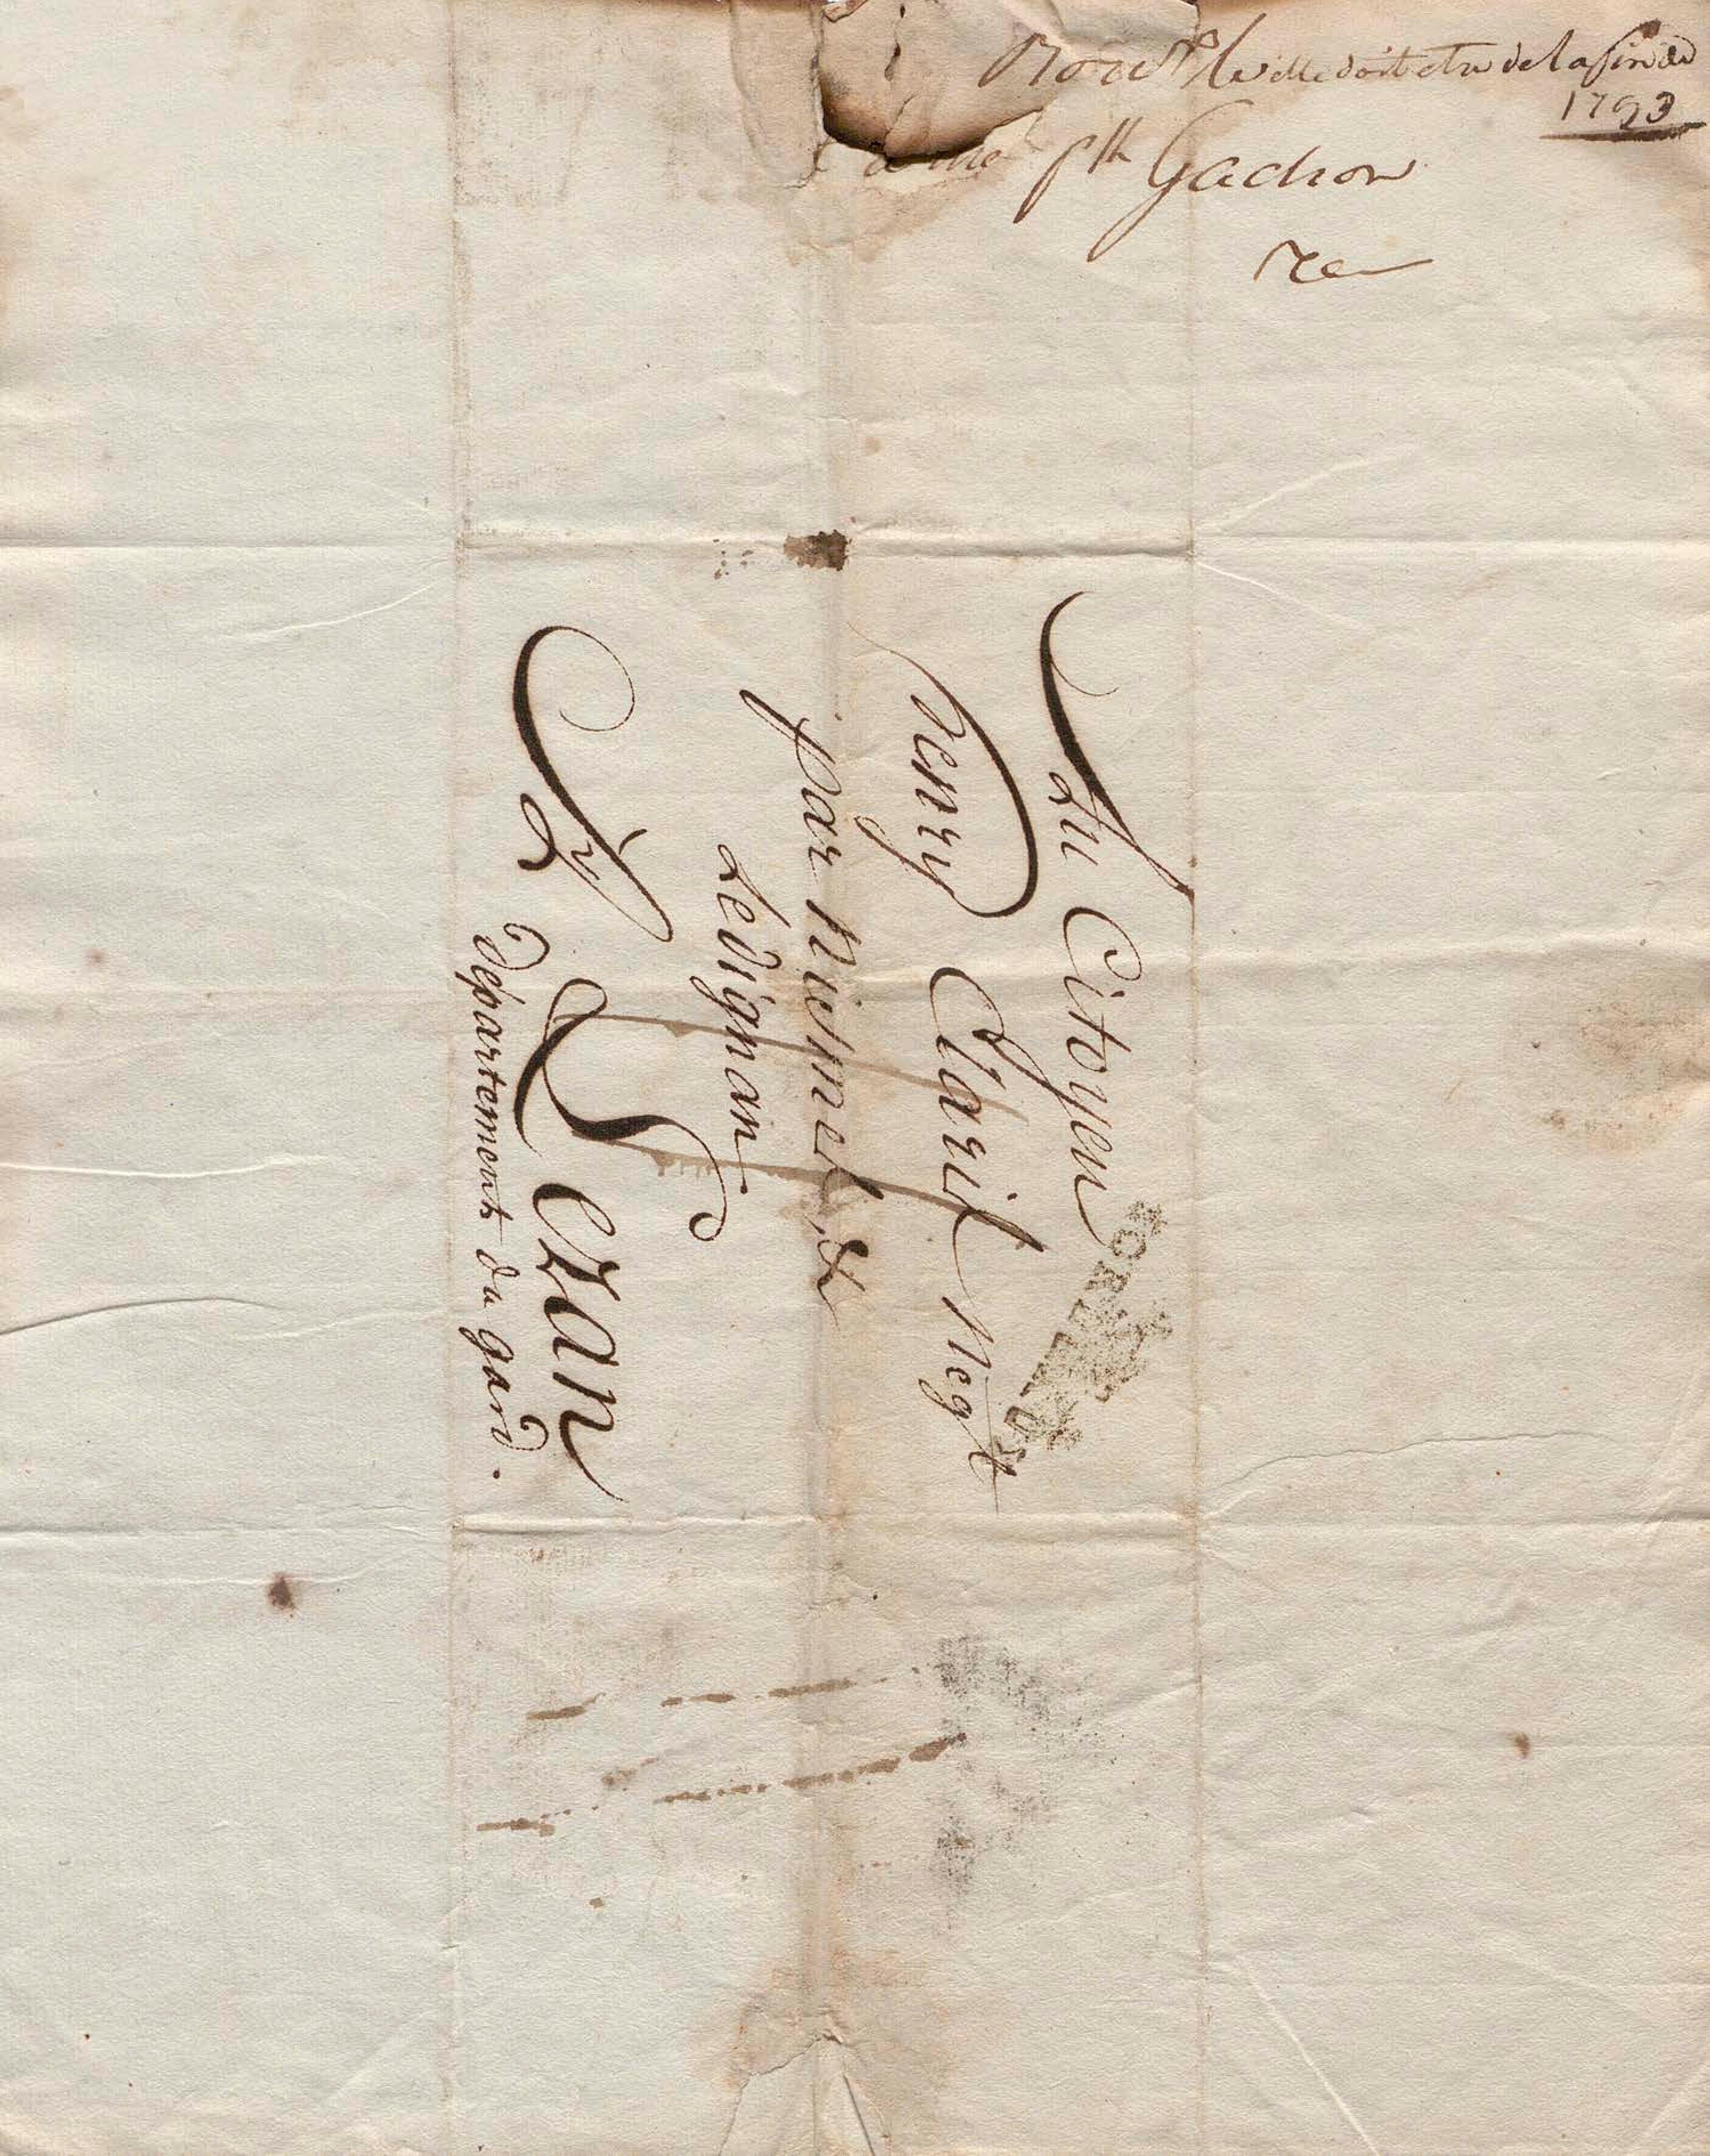 elle doit etre de la fin de
1793
pth Gachon
Au Citoyen
henry Clauzil Negt
par Nismes &
Ledignan
A Lezan
Département du gard.